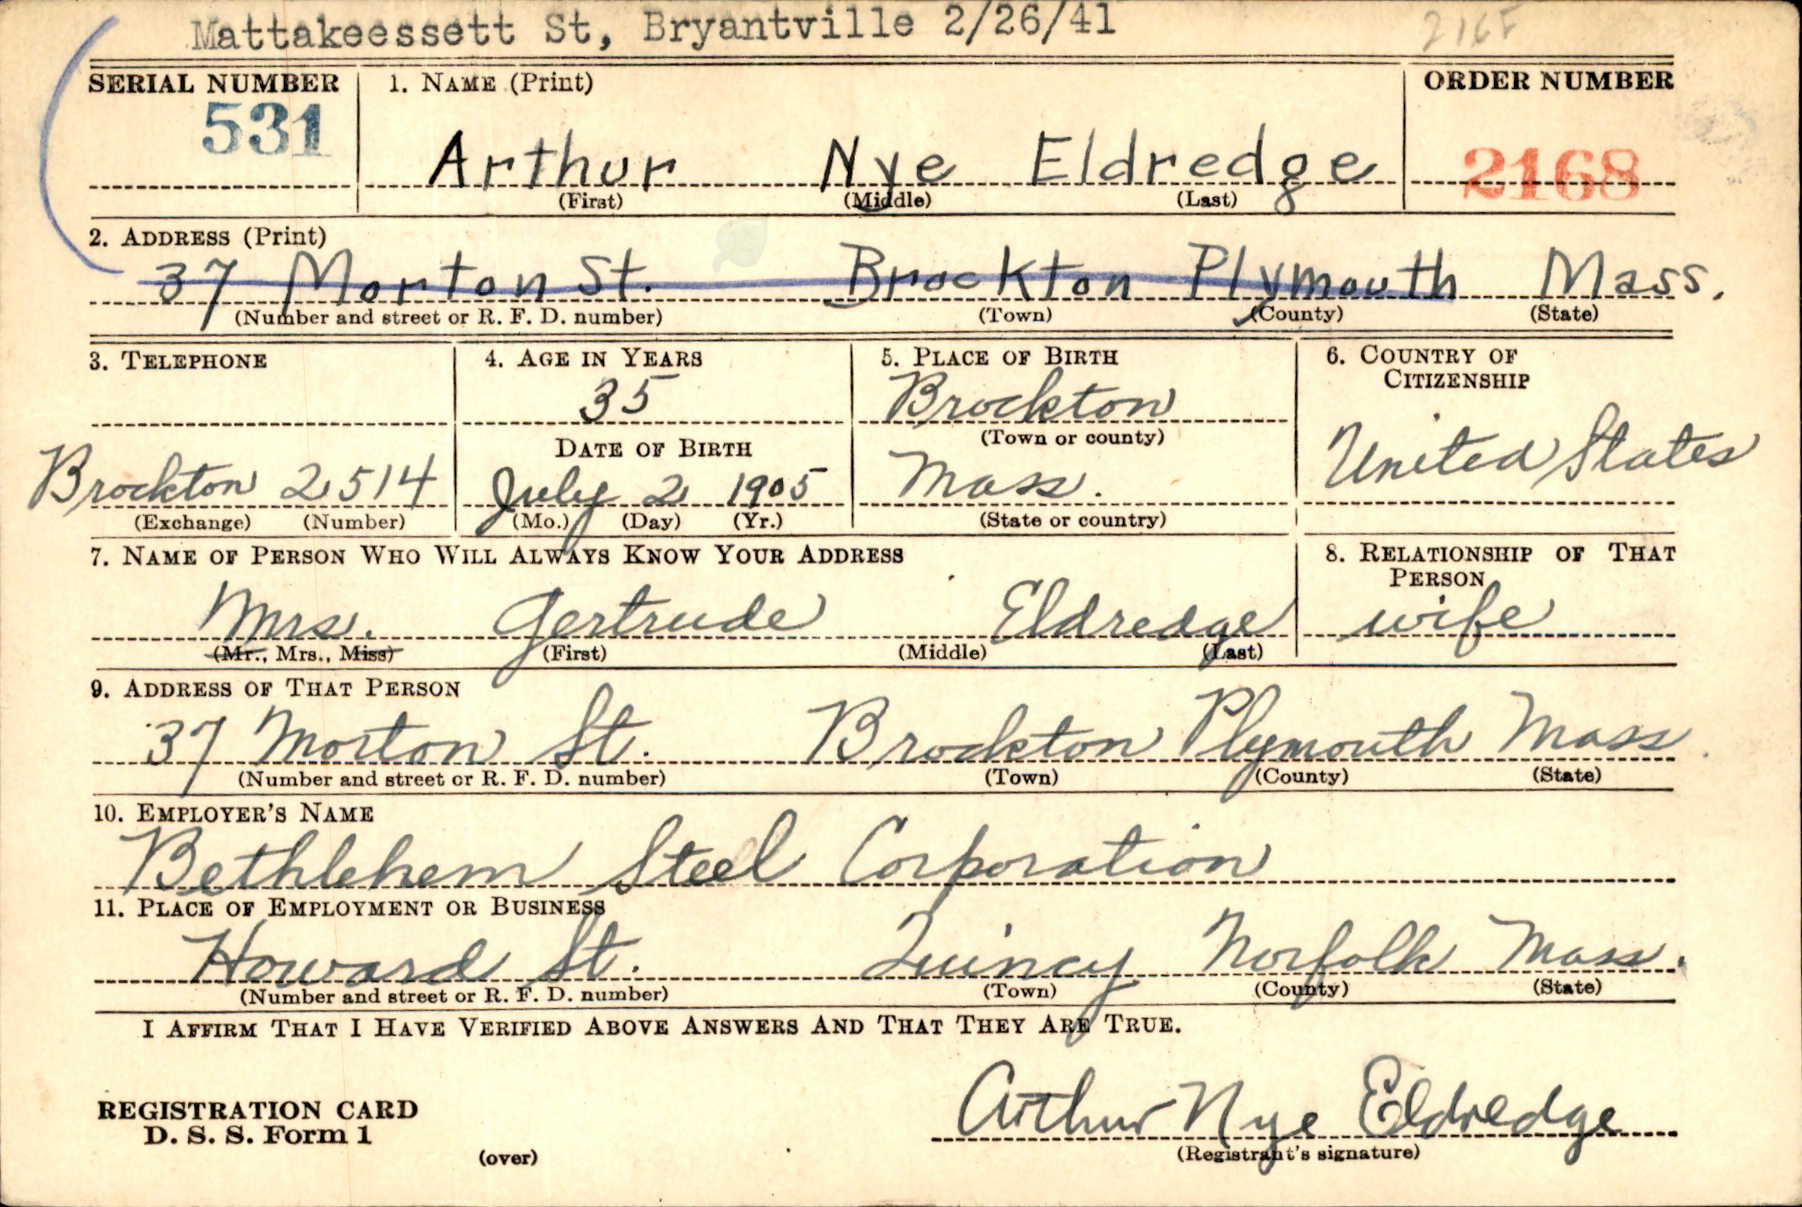 Mattakeessett St, Bryantville 2/26/41
SERIAL NUMBER 1. NAME (Print) ORDER NUMBER
531 Arthur Nye Eldredge 2168
(First) (Middle) (Last)
2. ADDRESS (Print)
37 Morton St. Brockton Plymouth Mass.
(Number and street or R. F. D. number) (Town) (County) (State)
3. TELEPHONE 4. AGE IN YEARS 5. PLACE OF BIRTH 6. COUNTRY OF CITIZENSHIP
35 Brockton
DATE OF BIRTH (Town or county) United States
Brockton 2514 July 2 1905 Mass.
(Exchange) (Number) (Mo.) (Day) (Yr.) (State or country)
7. NAME OF PERSON WHO WILL ALWAYS KNOW YOUR ADDRESS 8. RELATIONSHIP OF THAT PERSON
Mrs. Gertrude Eldredge wife
(Mr., Mrs., Miss) (First) (Middle) (Last)
9. ADDRESS OF THAT PERSON
37 Morton St. Brockton Plymouth Mass
(Number and street or R. F. D. number) (Town) (County) (State)
10. EMPLOYER'S NAME
Bethlehem Steel Corporation
11. PLACE OF EMPLOYMENT OR BUSINESS
Howard St. Quincy Norfolk Mass.
(Number and street or R. F. D. number) (Town) (County) (State)
I AFFIRM THAT I HAVE VERIFIED ABOVE ANSWERS AND THAT THEY ARE TRUE.
REGISTRATION CARD
D. S. S. Form 1 Arthur Nye Eldredge
(over) (Registrant's signature)